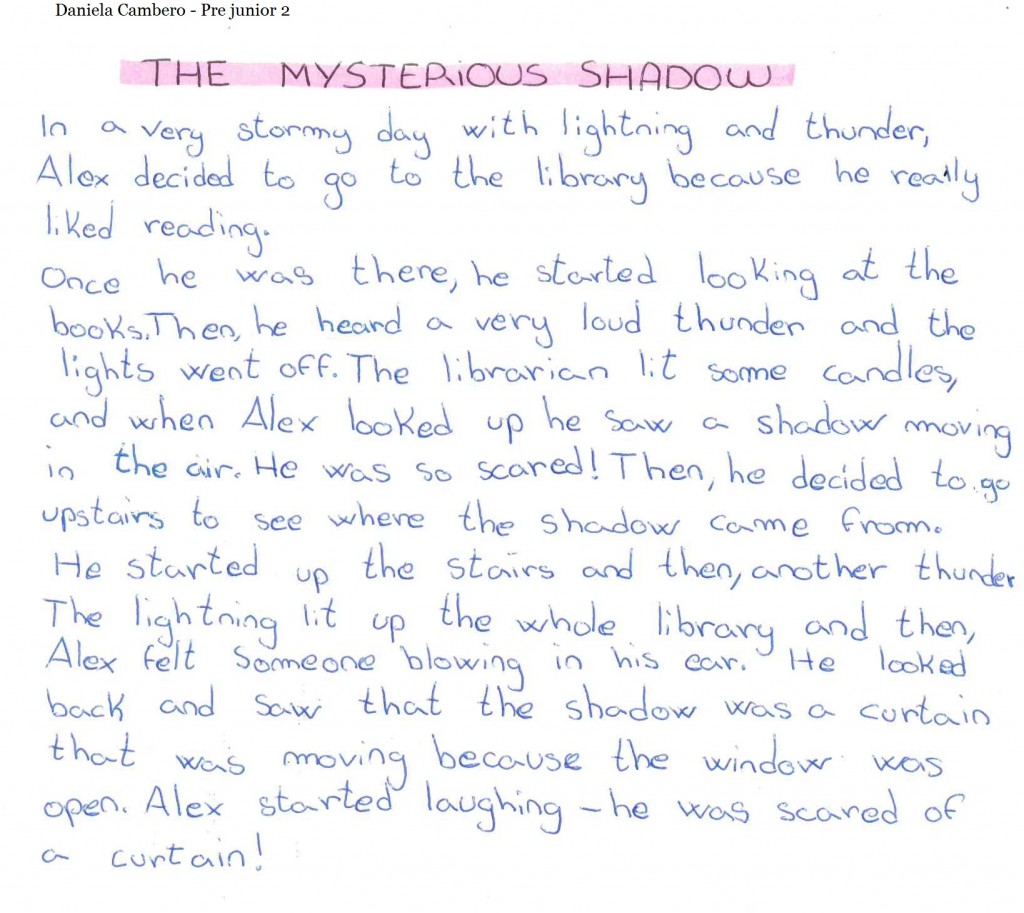 Daniela Cambero - Pre junior 2
THE MYSTERiOUS SHADOW
In a very stormy day with lightning and thunder,
Alex decided to go to the library because he really
liked reading.
Once he was there, he started looking at the
books. Then, he heard a very loud thunder and the
lights went off. The librarian lit some candles,
and when Alex looked up he saw a shadow moving
in the air. He was so scared! Then, he decided to go
upstairs to see where the shadow came from.
He started up the stairs and then, another thunder
The lightning lit up the whole library and then,
Alex felt someone blowing in his ear. He looked
back and saw that the shadow was a curtain
that was moving because the window was
open. Alex started laughing – he was scared of
a curtain!